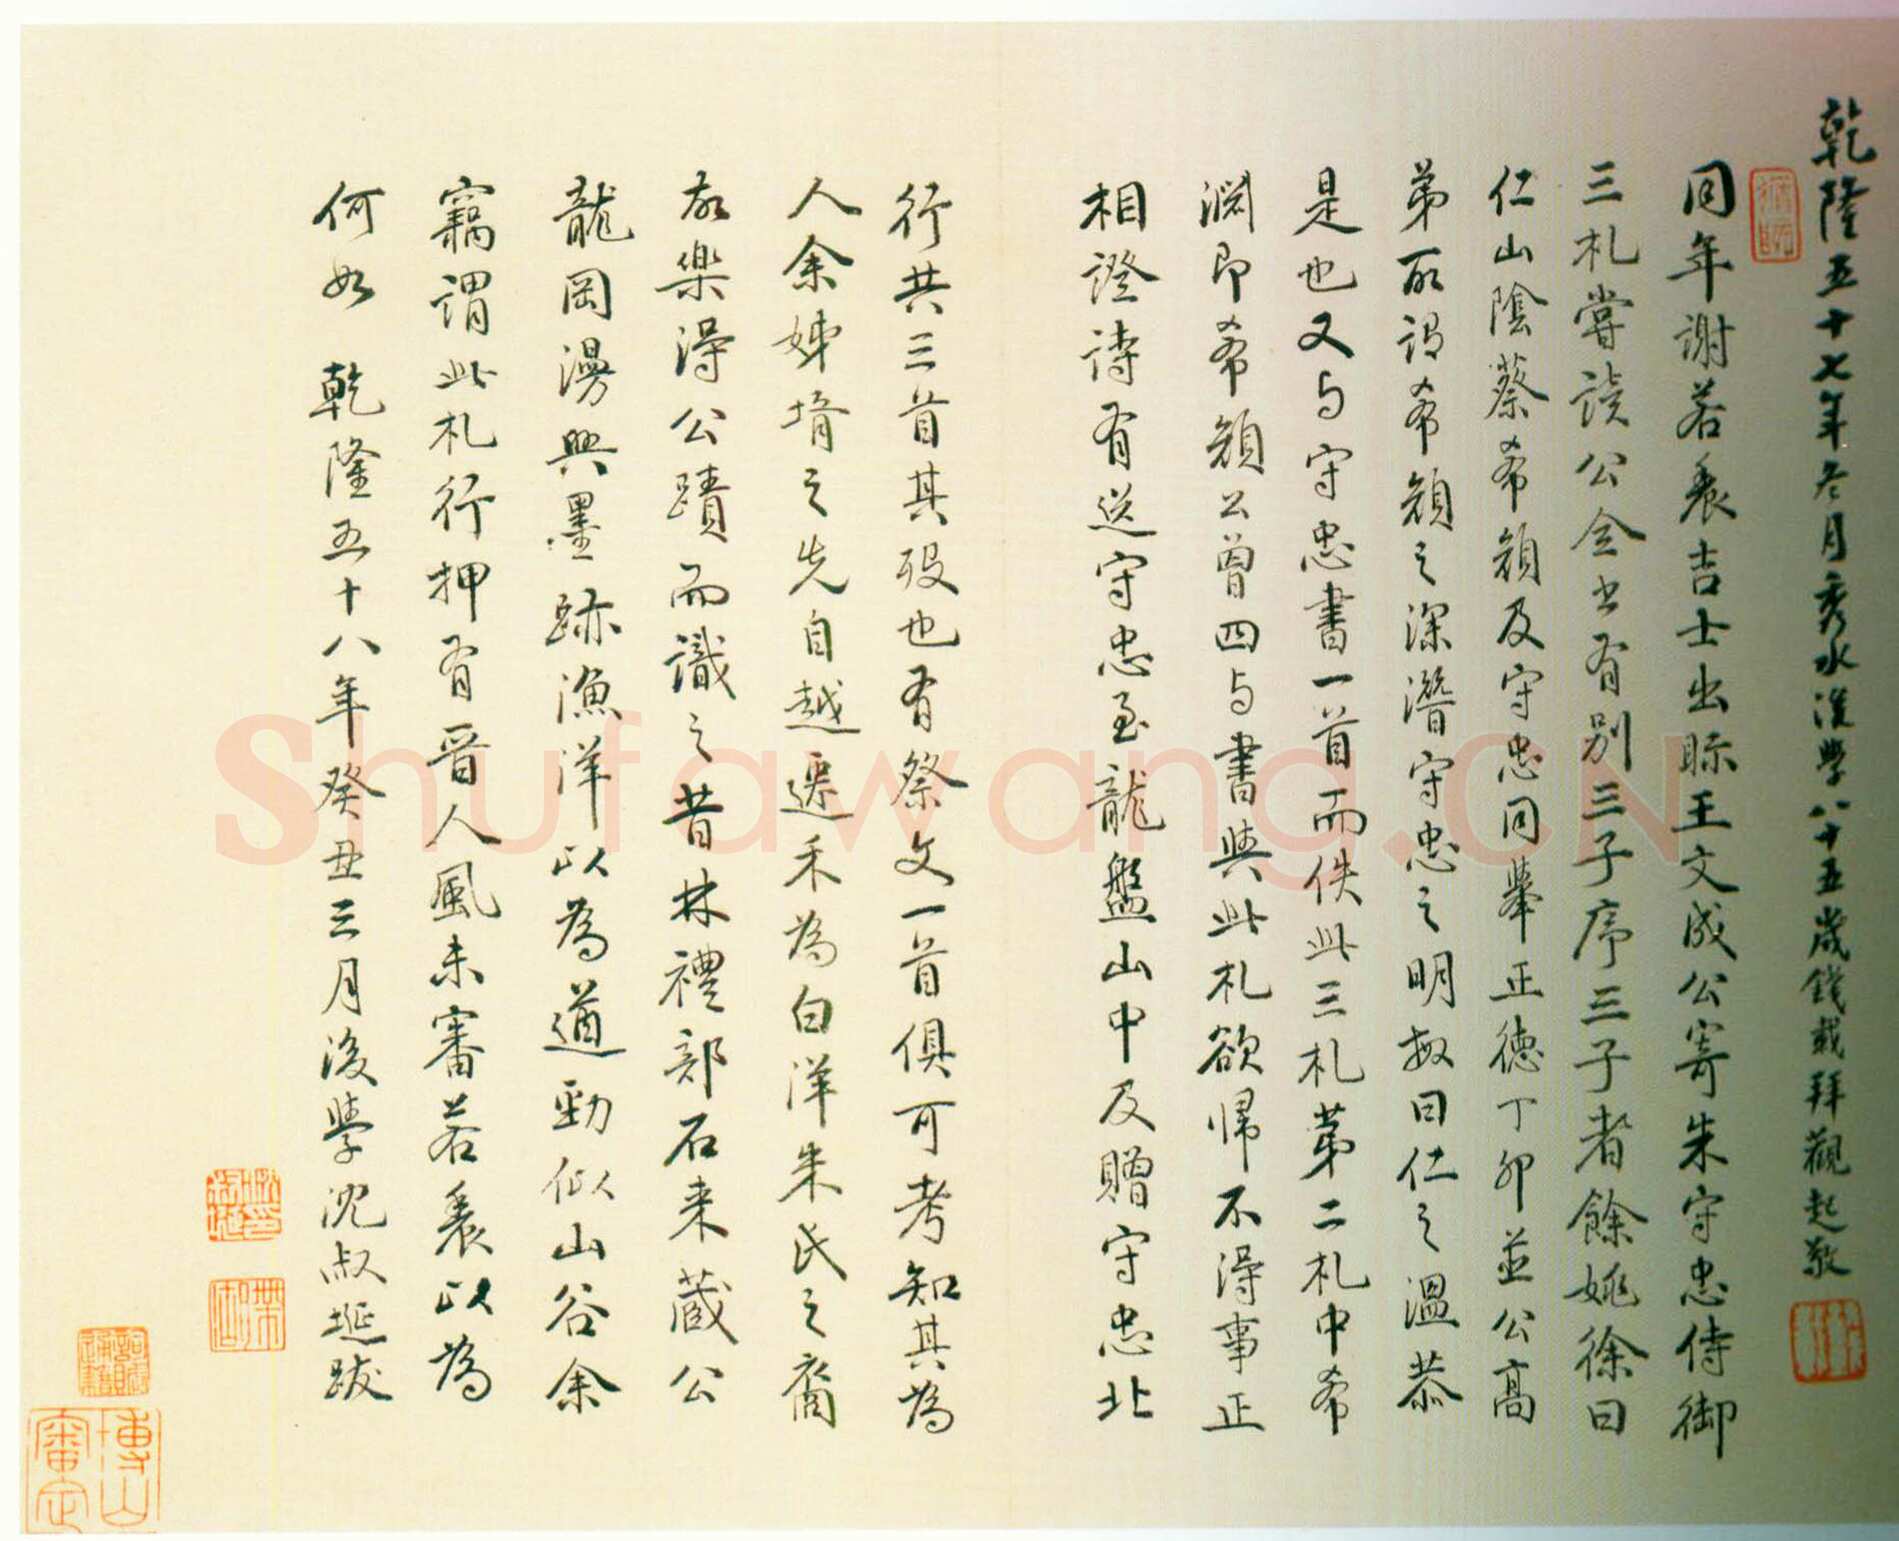 乾隆五十七年冬月秀水後學八十五歲錢載拜觀起敬
同年謝若農吉士出眎王文成公寄朱守忠侍御
三札嘗讀公全書有別三子序三子者餘姚徐曰
仁山陰蔡希顏及守忠同舉正德丁卯並公高
弟所謂希顏之深潛守忠之明敏曰仁之溫恭
是也又与守忠書一首而佚此三札第二札中希
淵即希顏公曾四与書與此札欲帰不得事正
相證詩有送守忠至龍盤山中及贈守忠北
行共三首其歿也有祭文一首俱可考知其為
人余姊壻之先自越遷禾為白洋朱氏之裔
故樂得公蹟而識之昔林禮部石来蔵公
龍岡漫興墨跡漁洋以為遒勁似山谷余
竊謂此札行押有晉人風未審若農以為
何如 乾隆五十八年癸丑三月後學沈叔埏跋
博山
審定
Shufawang.CN